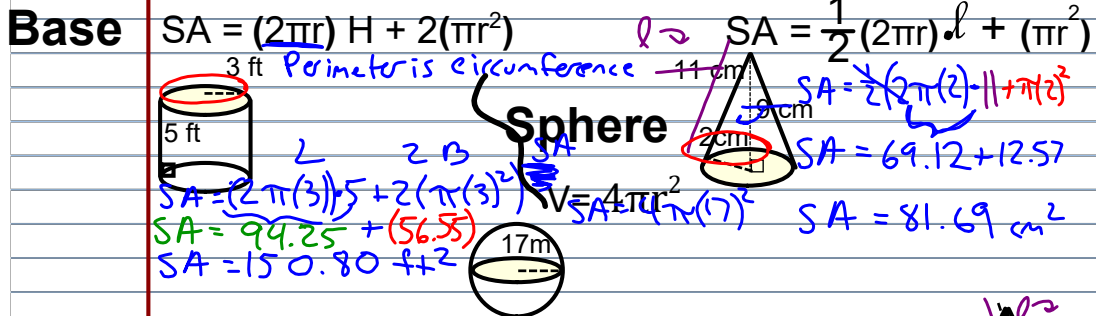 Base
SA = (2πr) H + 2(πr²)
3 ft Perimeter is circumference
5 ft
L 2 B
SA = (2π(3))·5 + 2(π(3)²)
SA = 94.25 + (56.55)
SA = 150.80 ft²
Sphere
SA
V= 4πr²
SA = 4π(17)²
17m
l → SA = 1/2 (2πr) · l + (πr²)
11 cm
9 cm
2cm
SA = 1/2(2π(2)·11 + π(2)²
SA = 69.12 + 12.57
SA = 81.69 cm²